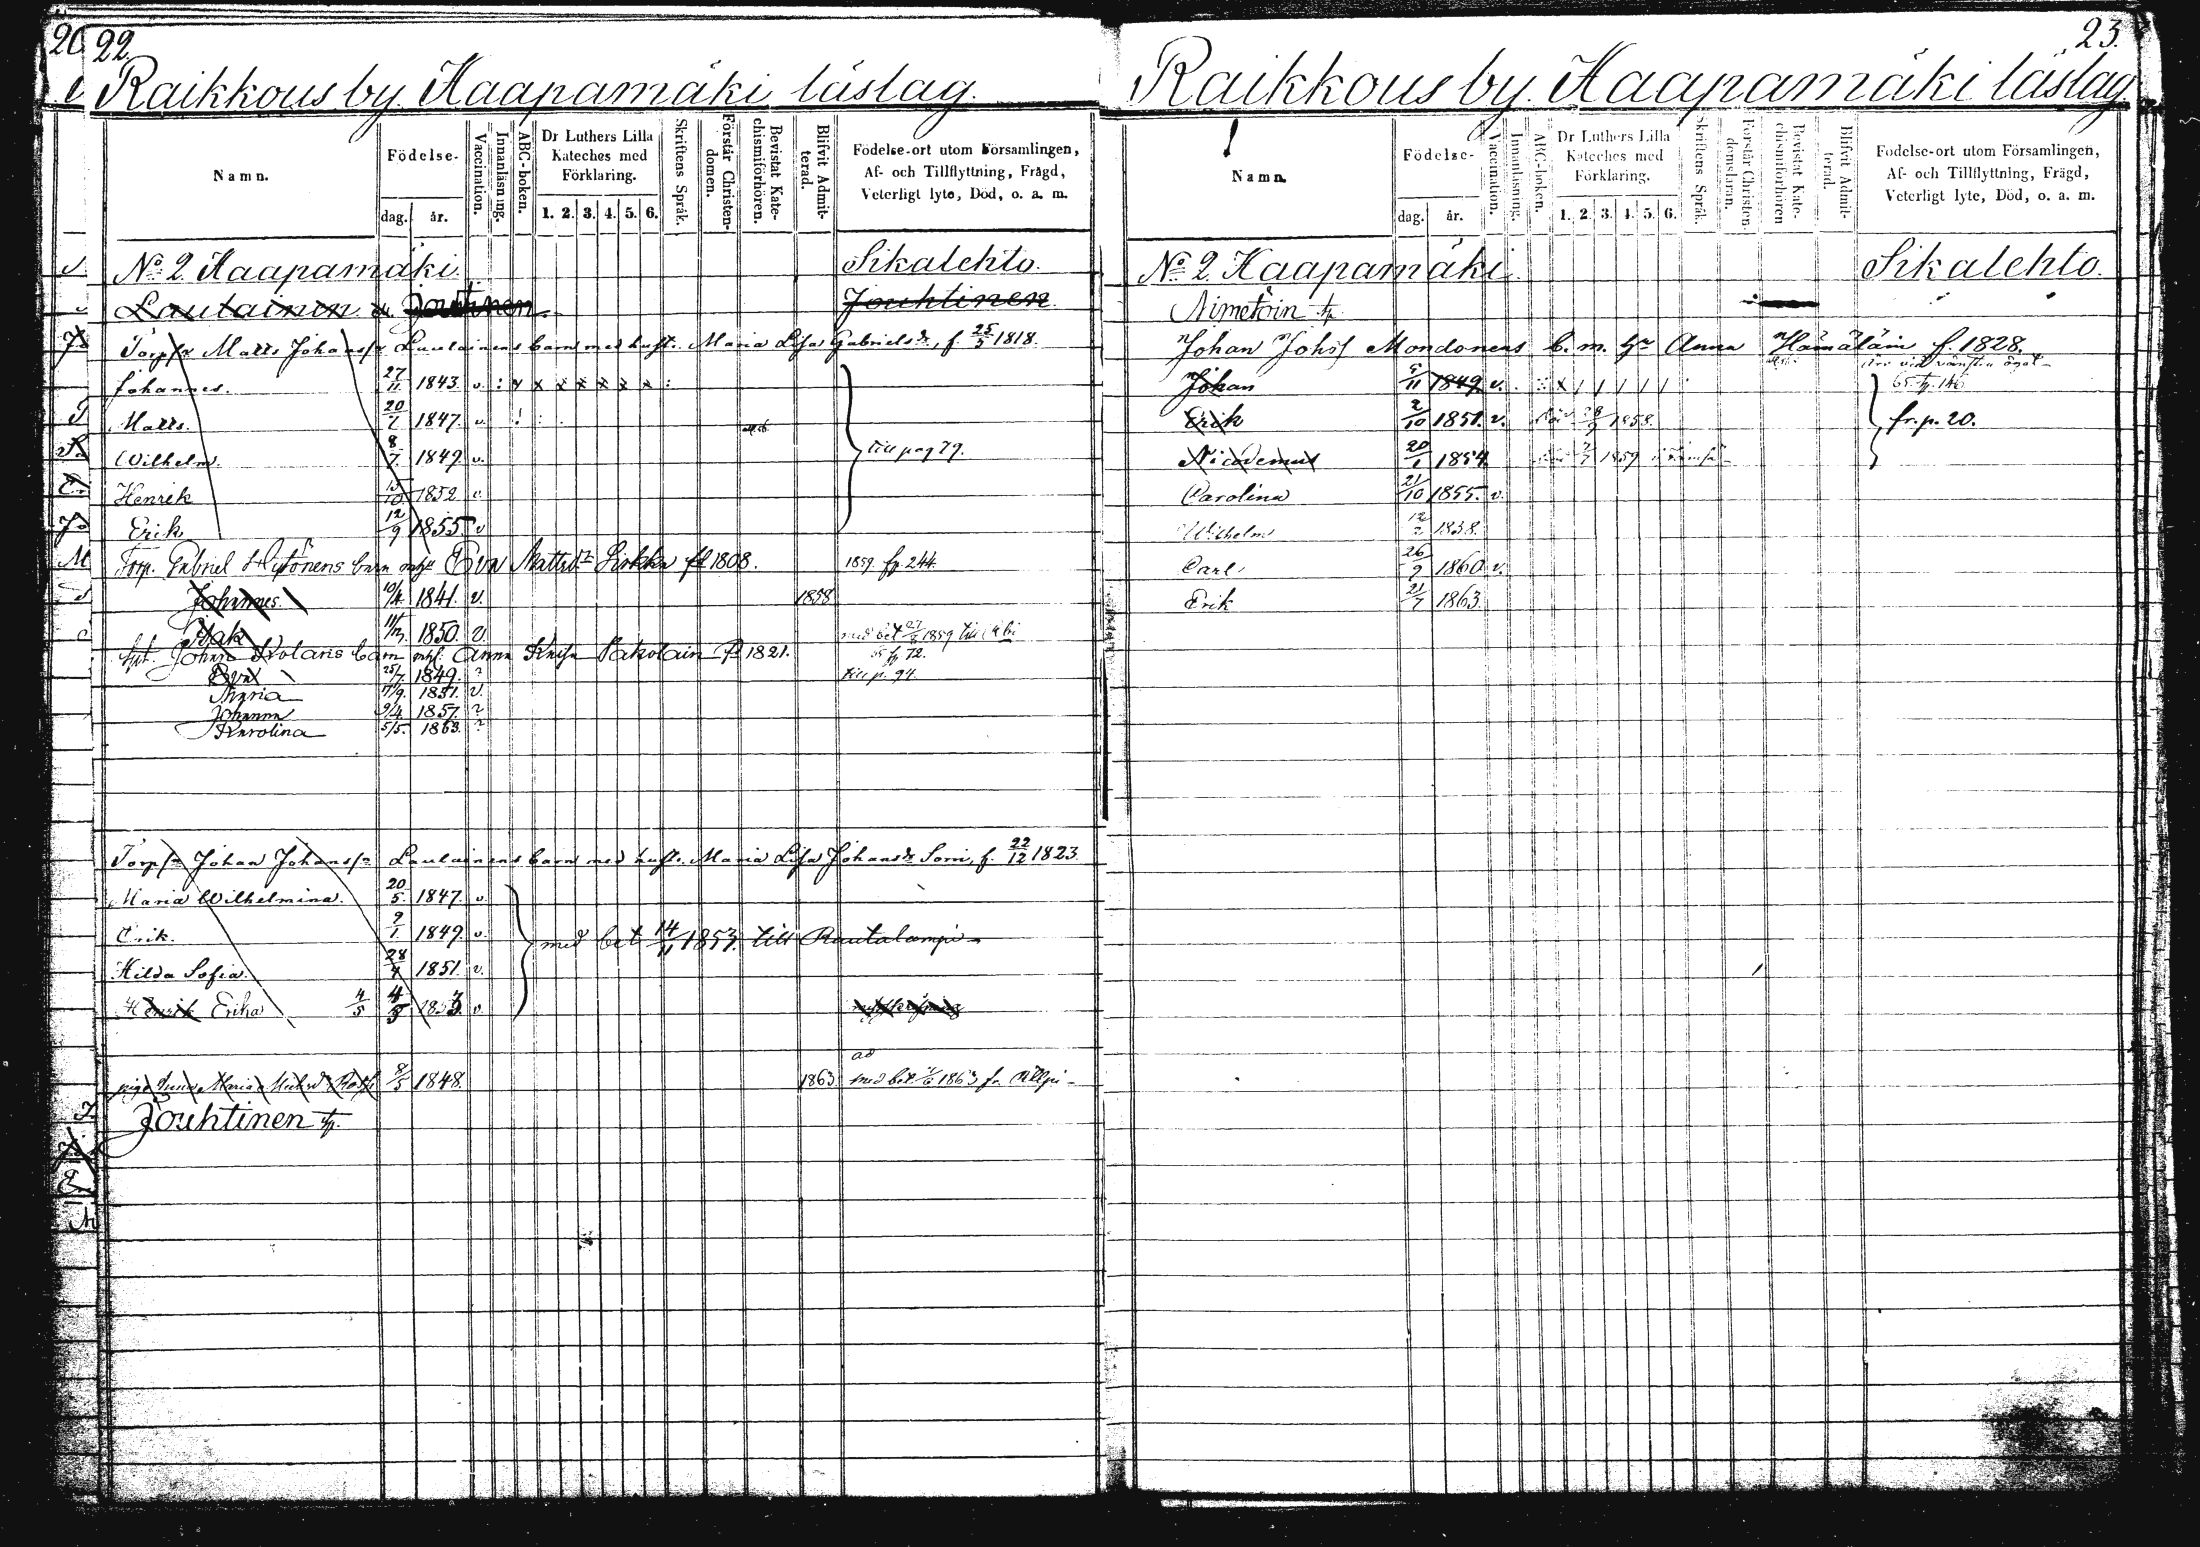 20
22.
Raikkous by. Haapamäki läslag.
Namn.
Födelse-
dag.
år.
Vaccination.
Innanläsning.
ABC-boken.
Dr Luthers Lilla
Kateches med
Förklaring.
1. 2. 3. 4. 5. 6.
Skriftens Språk.
Förstår Christen-
domen.
Bevistat Kate-
chismiförhören.
Blifvit Admit-
terad.
Födelse-ort utom Församlingen,
Af- och Tillflyttning, Frägd,
Veterligt lyte, Död, o. a. m.
No 2 Haapamäki. Sikalehto.
Lautainen Jouhtinen Jouhtinen
Torpsn Matts Johanssn Lautainens barn med hust. Maria Lisa Gabrielsdr, f. 25/5 1818.
Johannes. 27/11 1843. v. : x x x x x x x :
Matts. 20/7 1847. v.
Wilhelm. 8/7. 1849 v. till pag 79.
Henrik 15/10 1852 v.
Erik. 12/9 1855 v
Torp. Gabriel Hytönens barn mhu Eva Mattsdr Sirkka fd 1808. 1859. fp 244.
Johannes. 10/4. 1841. v. 1858
Isak 11/3. 1850. v. med bet 27/ 1859 till
Johan Kolaris barn mhu. Anna Kaisa Pakolain f. 1821. fp 72.
Eva 25/7 1849. ? till p. 94.
Maria 17/9. 1851. v.
Johanna 9/4 1857. ?
Karolina 5/5. 1863. ?
Torpsn Johan Johanssn Lautainens barn med hust. Maria Lisa Johansdr Sorri, f. 22/12 1823.
Maria Wilhelmina. 20/5. 1847. v.
Erik. 9/1 1849. v. med bet 14/11 1853. till Rautalampi
Hilda Sofia. 28/4 1851. v.
Henrik Erika 4/5 4/5 1853. v.
piga Anna Maria 8/5 1848. 1863 med bet. 1863 fr.
Jouhtinen tp.
23.
Raikkous by. Haapamäki läslag.
Namn.
Födelse-
dag.
år.
Vaccination.
Innanläsning.
ABC-boken.
Dr Luthers Lilla
Kateches med
Förklaring.
1. 2. 3. 4. 5. 6.
Skriftens Språk.
Förstår Christen-
domsläran.
Bevistat Kate-
chismiförhören
Blifvit Admit-
terad.
Födelse-ort utom Församlingen,
Af- och Tillflyttning, Frägd,
Veterligt lyte, Död, o. a. m.
No 2 Haapamäki. Sikalehto.
Nimetöin tp
Johan Johss Mondonens b. m. hu Anna Hämäläin f. 1828.
Johan 5/11 1849. v. 65. fp. 146
Erik 2/10 1851. v. död 28/9 1858. fr. p. 20.
Nicodemus 20/1 1854. 1859
Carolina 21/10 1855. v.
Wilhelm 1858.
Carl 26/9 1860. v.
Erik 21/7 1863.